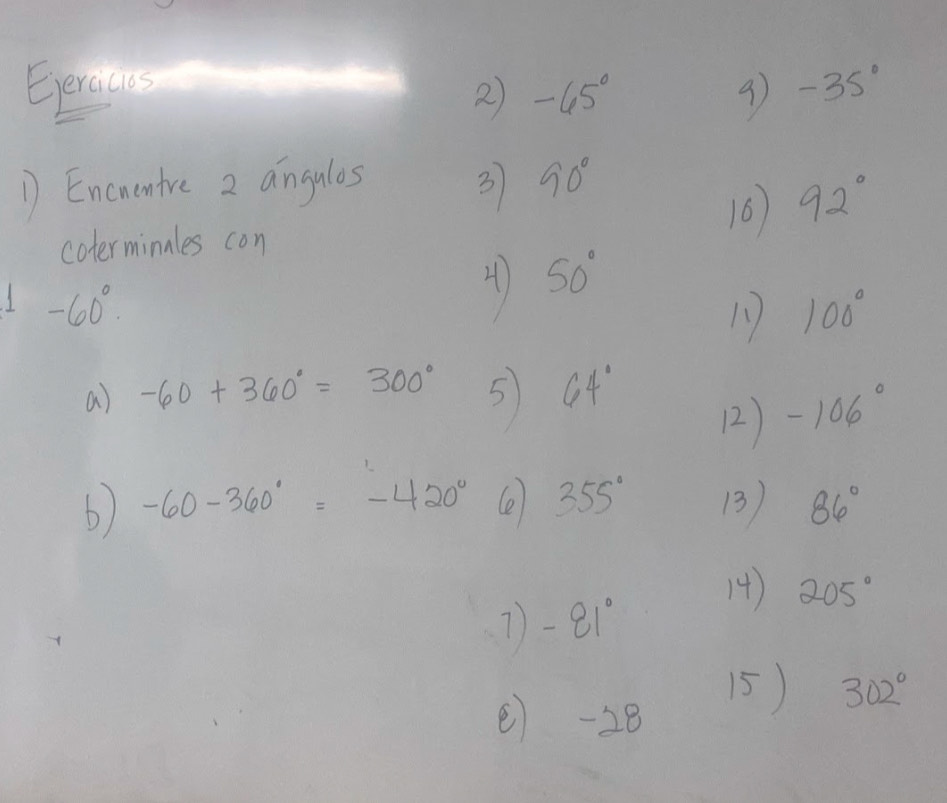 Ejercicios
1) Encuentre 2 ángulos
coterminales con
1 -60°.
a) -60 + 360° = 300°
b) -60 - 360° = -420°
2) -65°
3) 90°
4) 50°
5) 64°
6) 355°
7) -81°
8) -28
9) -35°
10) 92°
11) 100°
12) -106°
13) 86°
14) 205°
15) 302°